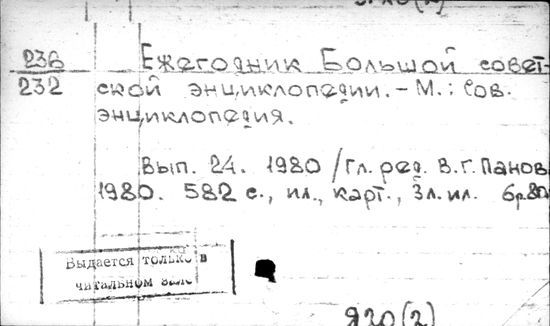 236
232
Ежегодник Большой совет-
ской энциклопедии. – М.: Сов.
энциклопедия.
Вып. 24. 1980 / Гл. ред. В. Г. Панов
1980. 582 с., ил., карт., 3 л. ил. 6р.80
Выдается только в
читальном зале
Я20(2)